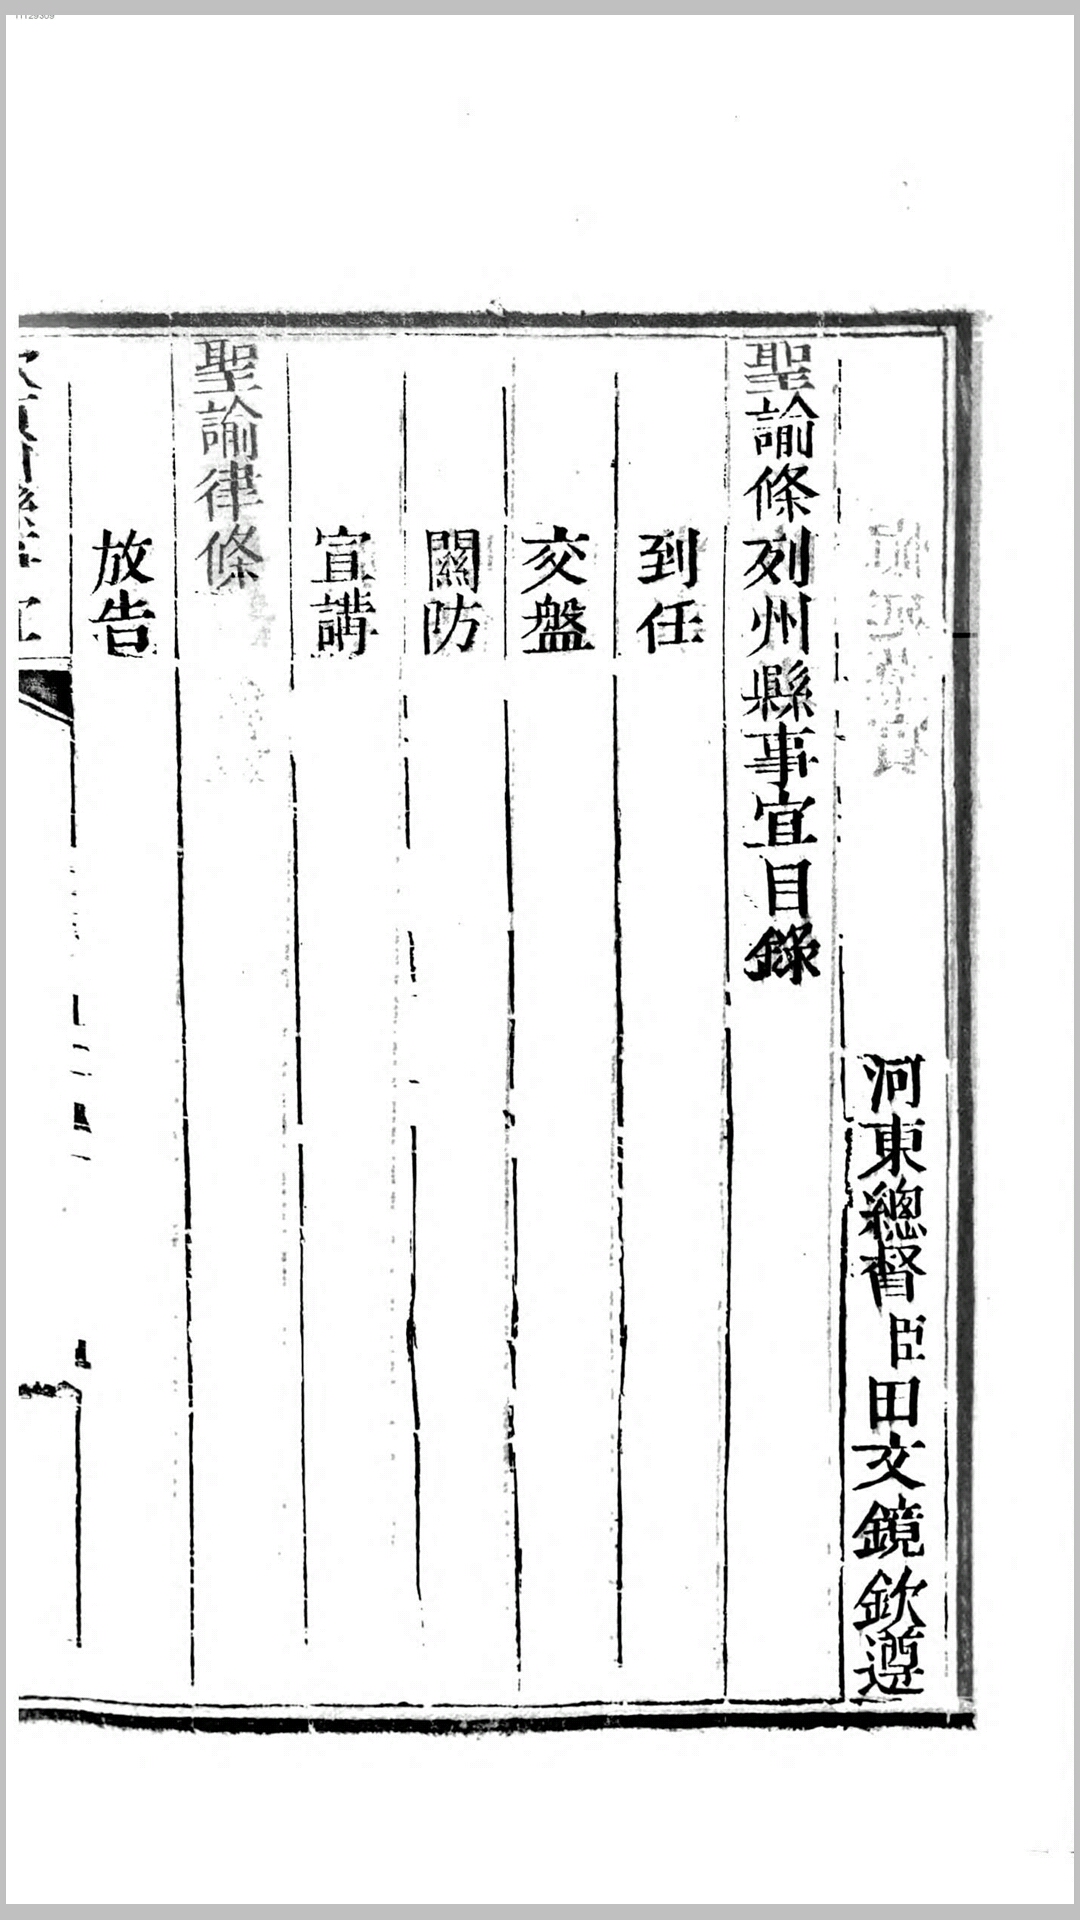 河東總督臣田文鏡欽遵
聖諭條列州縣事宜目錄
到任
交盤
關防
宣講
聖諭律條
放告